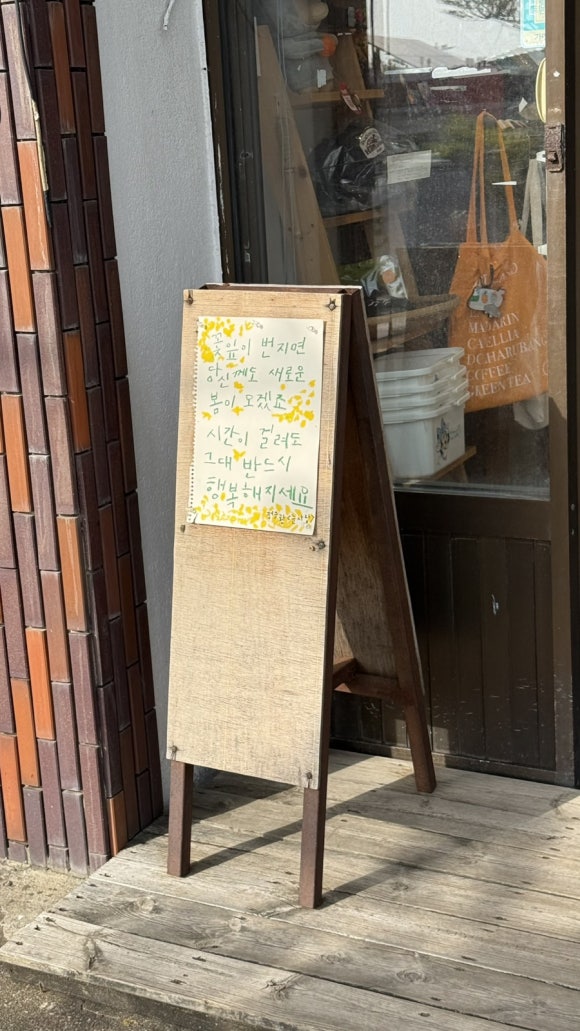 꽃잎이 번지면
당신께도 새로운
봄이 오겠죠
시간이 걸려도
그대 반드시
행복해지세요
MANDARIN
CAMELLIA
DOLHARUBANG
COFFEE
GREEN TEA